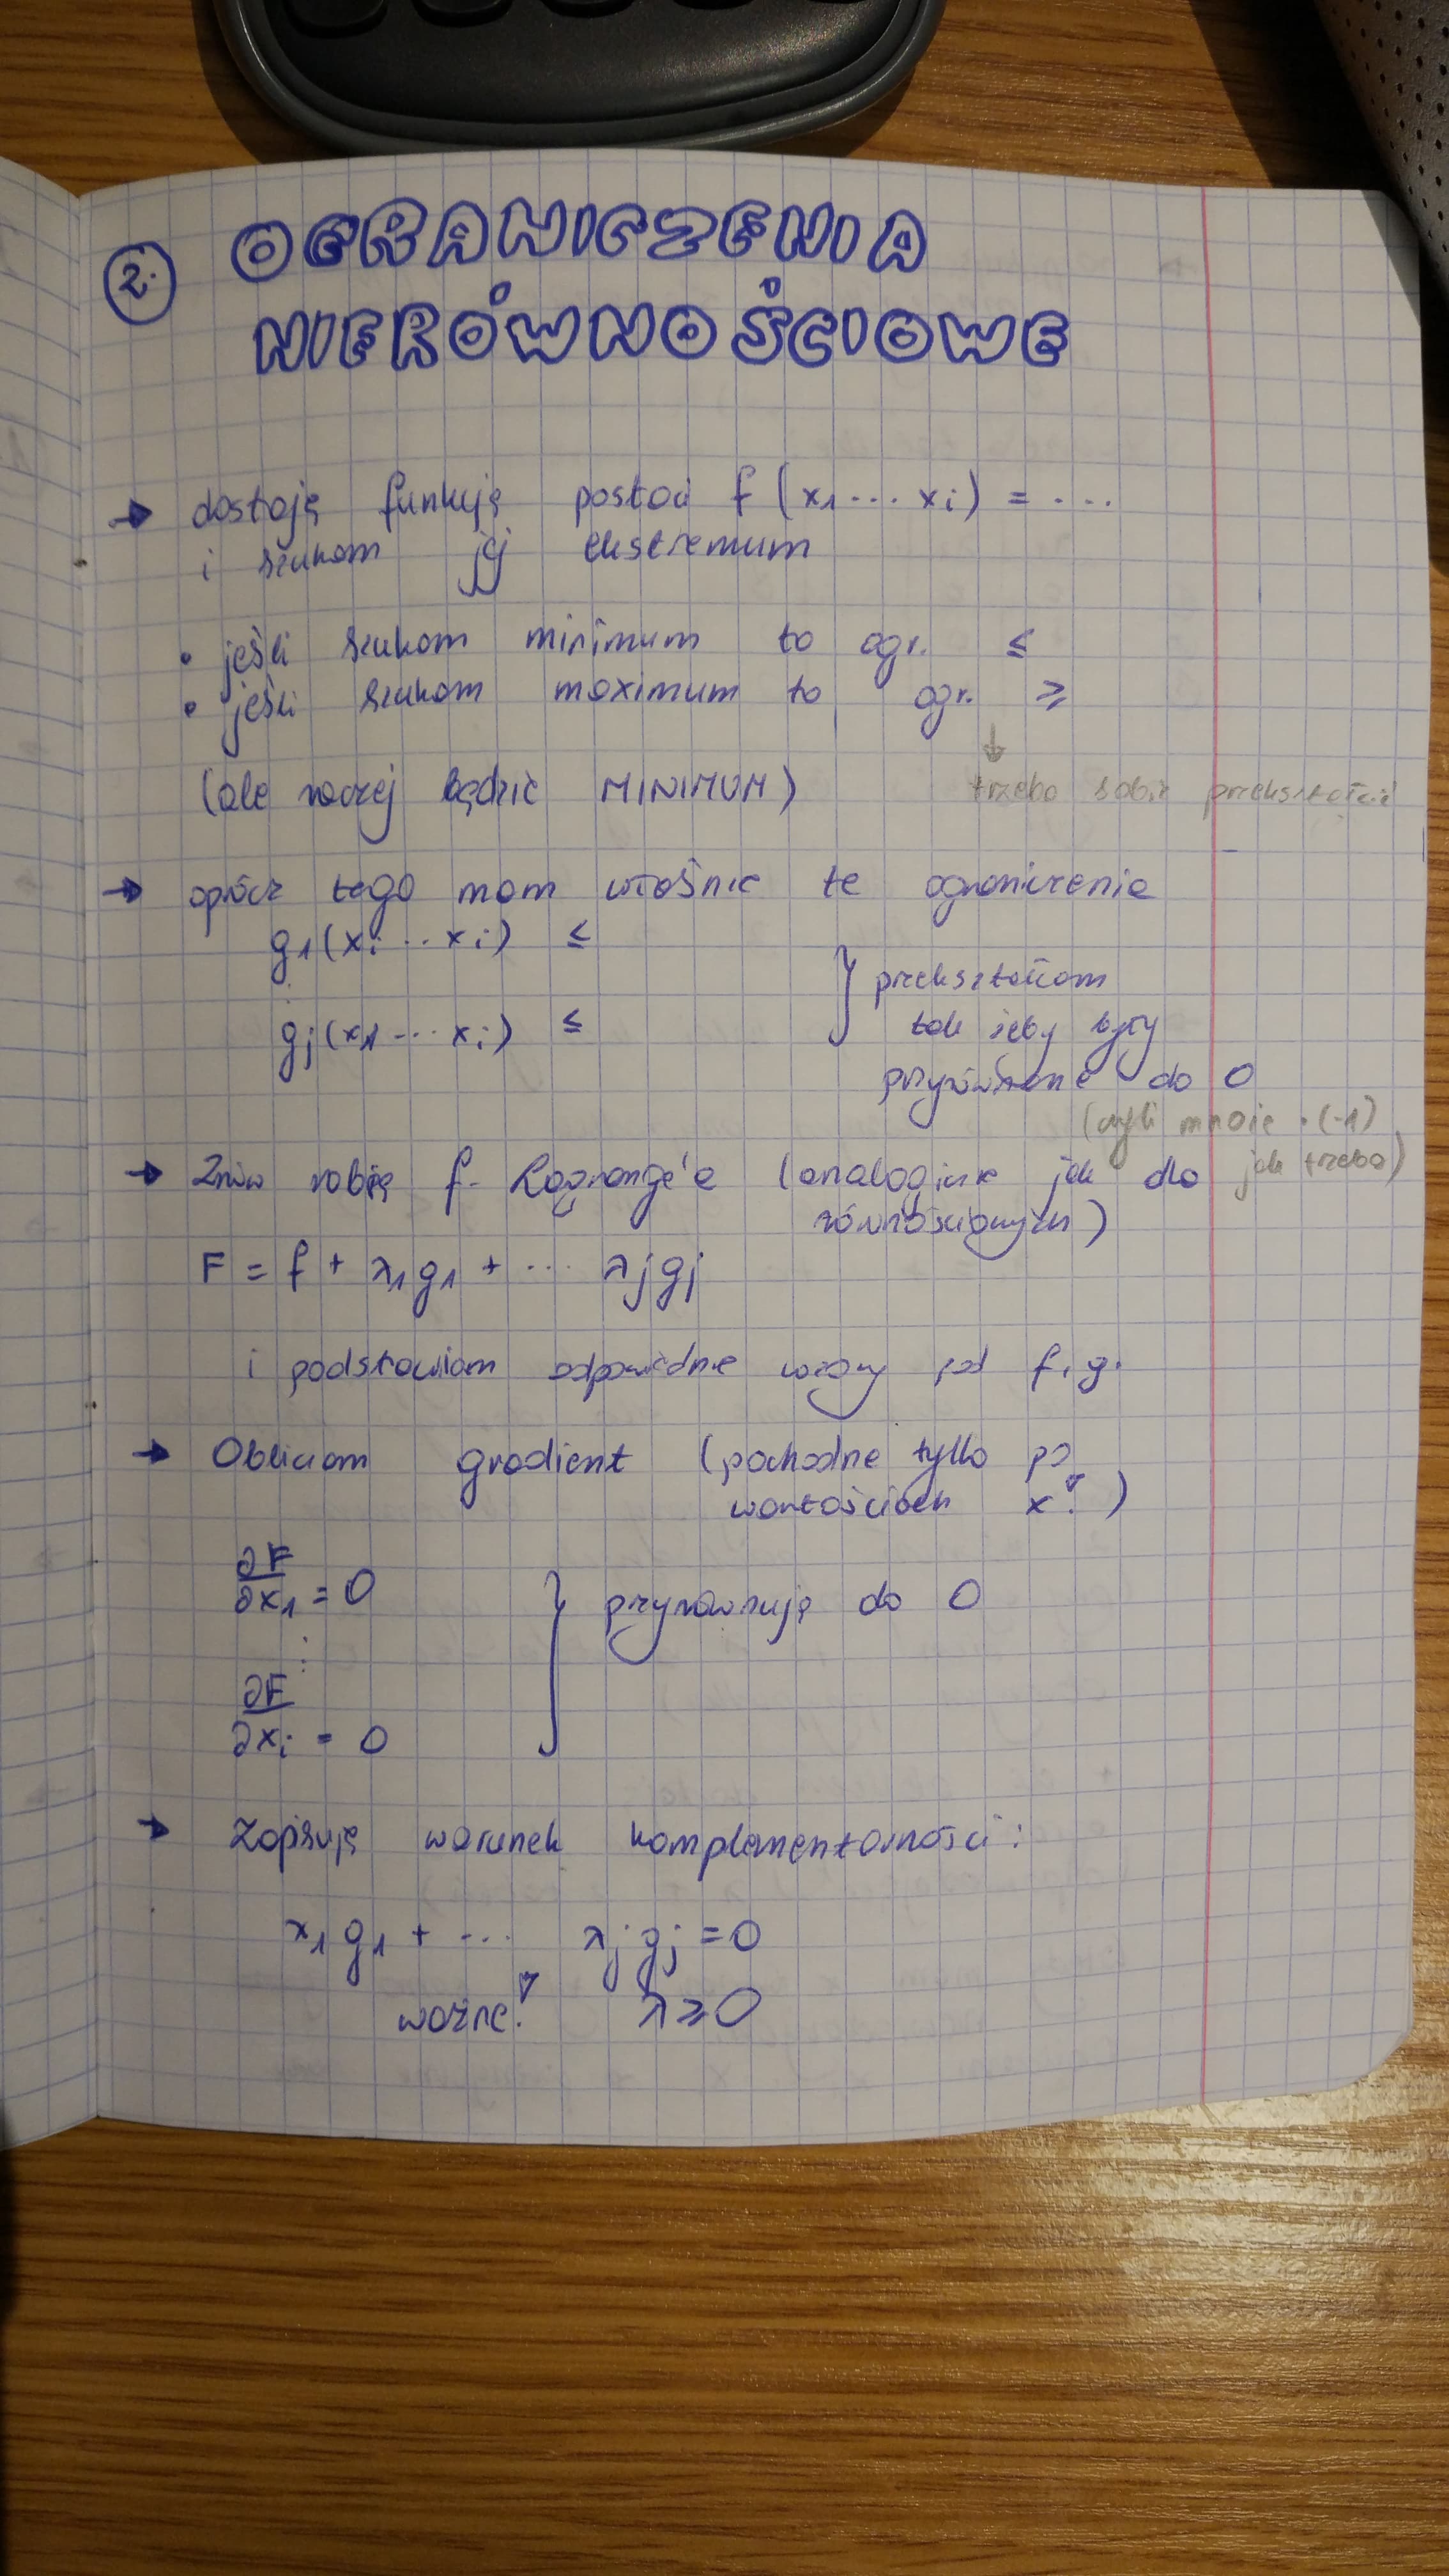 2. OGRANICZENIA
NIERÓWNOŚCIOWE
→ dostaję funkcję postaci f (x1 ... xi) = ...
i szukam jej ekstremum
• jeśli szukam minimum to ogr. ≤
• jeśli szukam maximum to ogr. ≥
↓
(ale raczej będzie MINIMUM)
trzeba sobie przekształcić
→ oprócz tego mam właśnie te ograniczenia
g1(xi ... xi) ≤
⋮
gj(x1 ... xi) ≤
} przekształcam
tak żeby były
przyrównane do 0
(czyli mnożę • (-1)
jak trzeba)
→ Znów robię f. Lagrange'a (analogicznie jak dla
równościowych)
F = f + λ1g1 + ... λjgj
i podstawiam odpowiednie wzory pod f i g.
→ Obliczam gradient (pochodne tylko po
wartościach x!)
∂F/∂x1 = 0
⋮
∂F/∂xi = 0
} przyrównuję do 0
→ Zapisuję warunek komplementarności:
λ1 g1 + ... λj gj = 0
ważne! λ ≥ 0